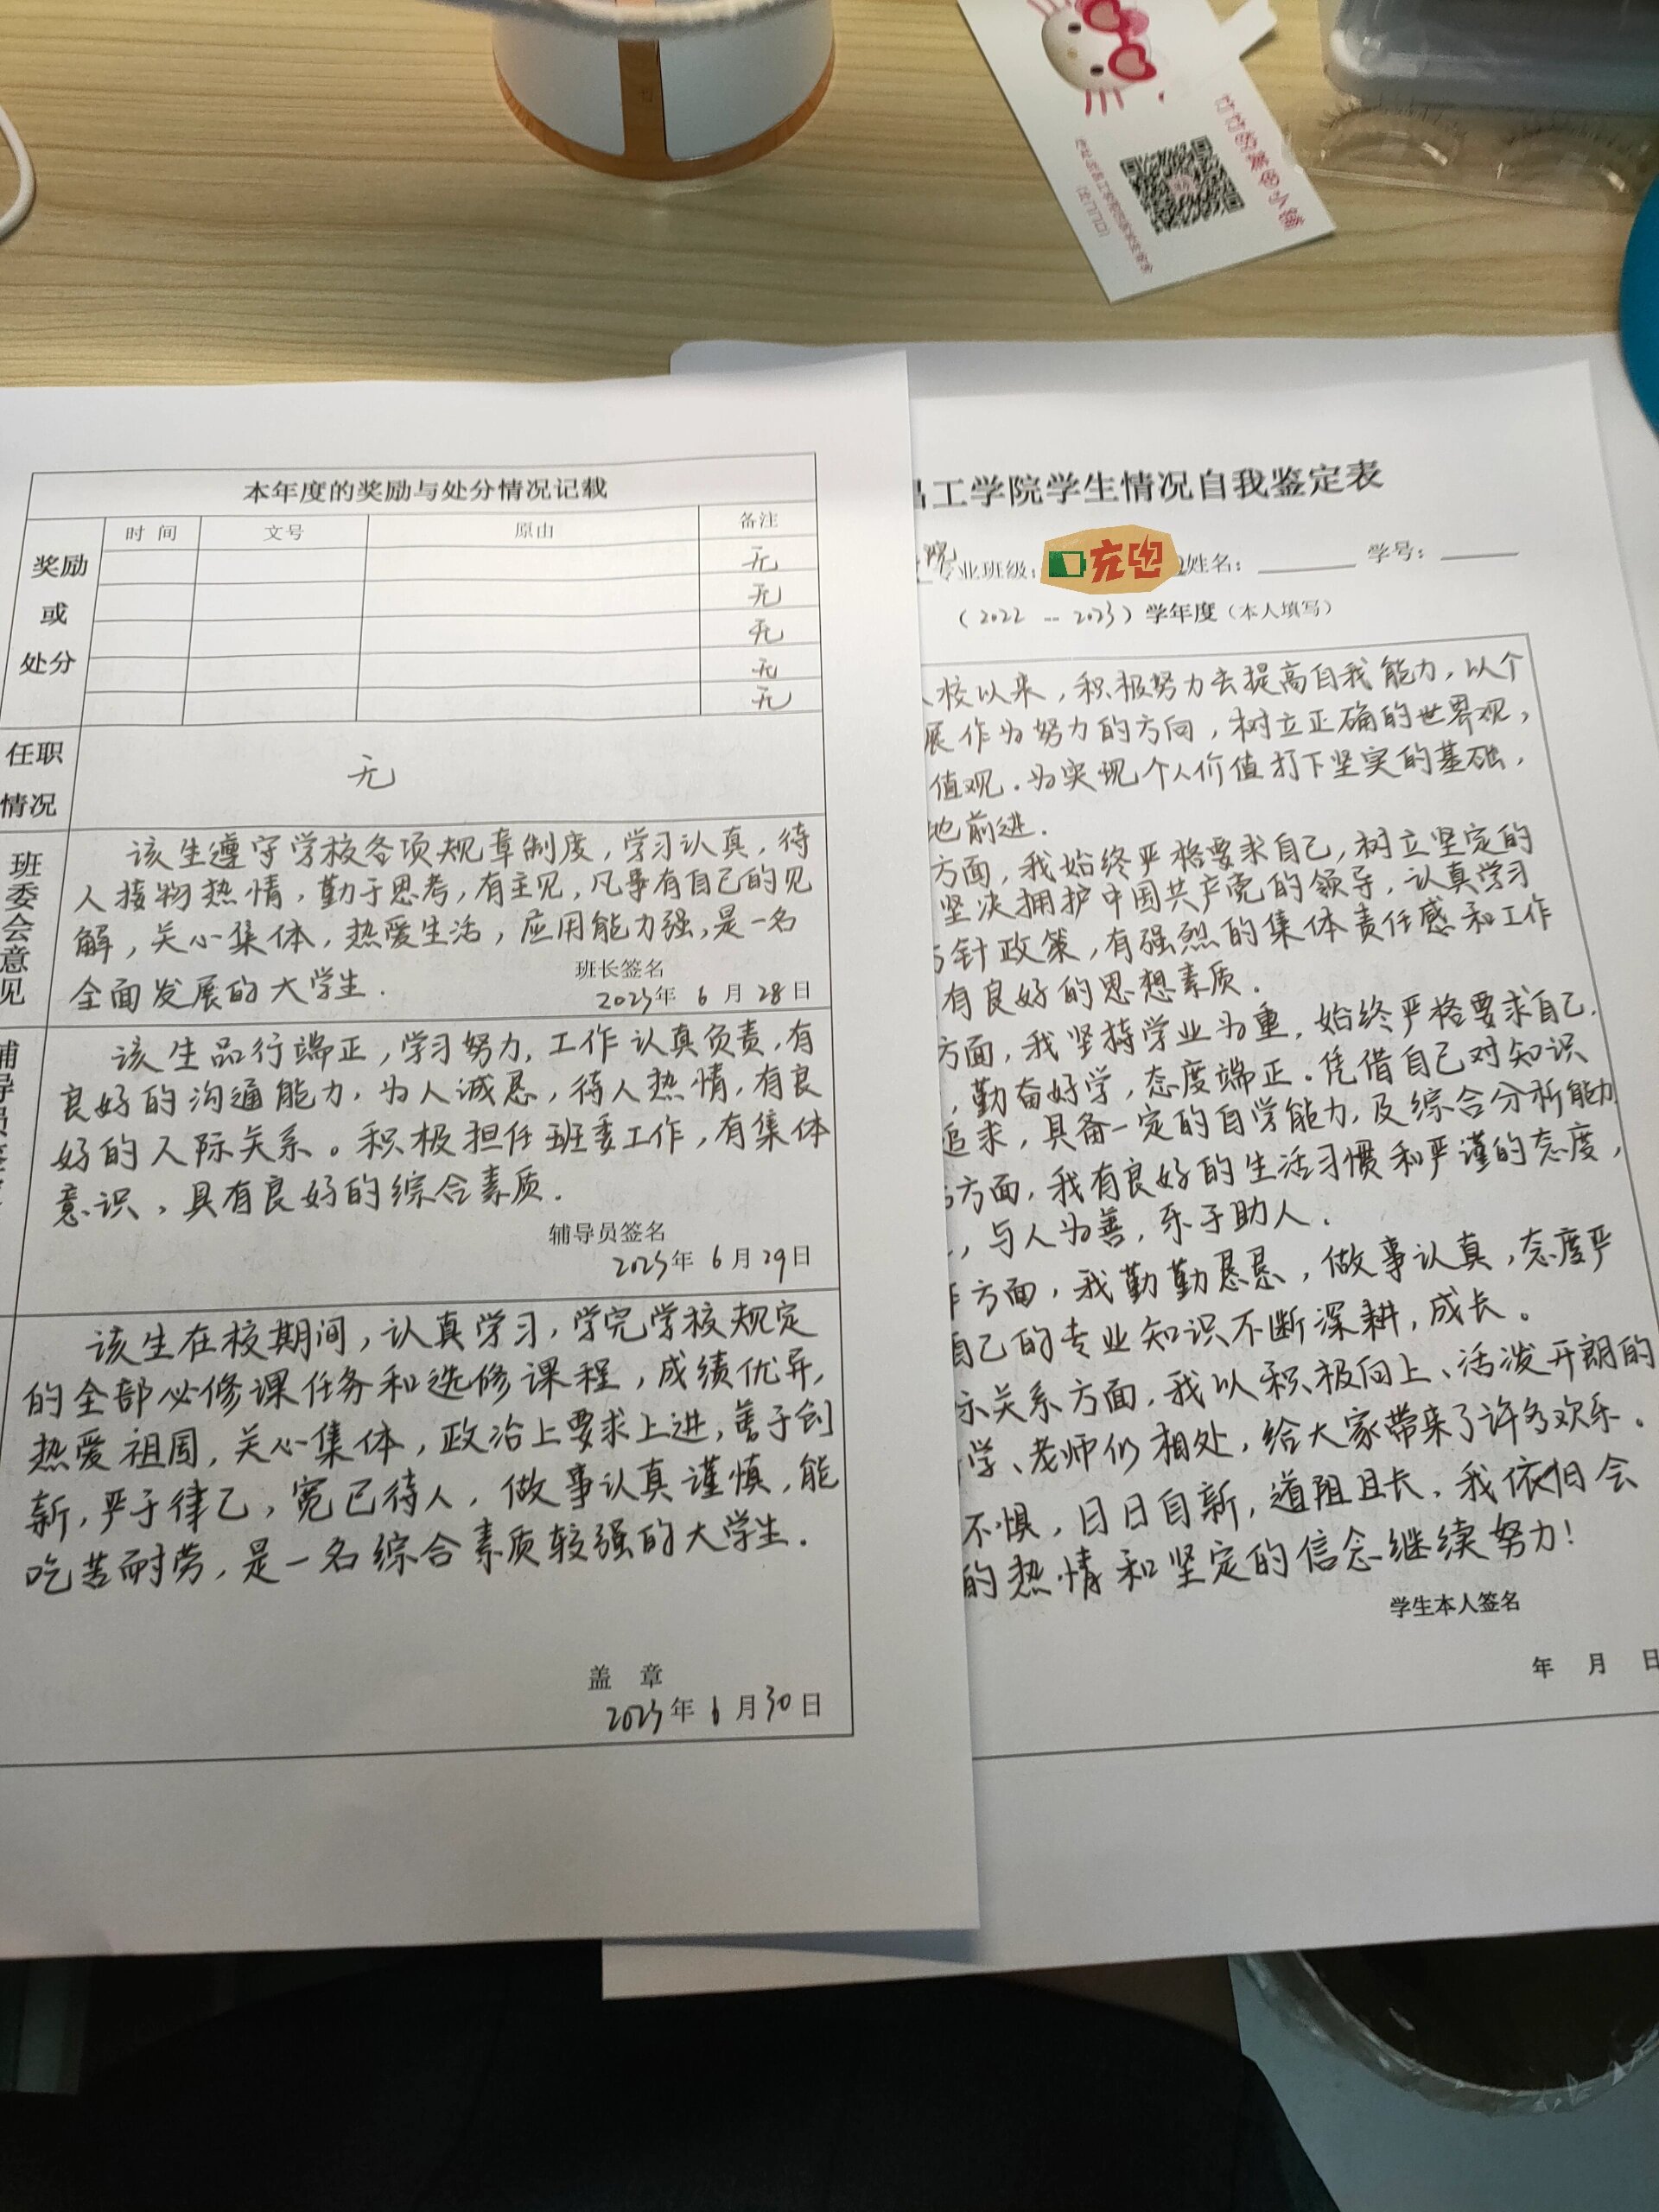 竹竹的美甲小铺
本年度的奖励与处分情况记载
时 间 文号 原由 备注
奖励
或
处分
无
无
无
无
无
任职
情况
无
班
委
会
意
见
该生遵守学校各项规章制度，学习认真，待
人接物热情，勤于思考，有主见，凡事有自己的见
解，关心集体，热爱生活，应用能力强，是一名
全面发展的大学生．
班长签名
2023年 6 月 28 日
辅
导
员
该生品行端正，学习努力，工作认真负责，有
良好的沟通能力，为人诚恳，待人热情，有良
好的人际关系。积极担任班委工作，有集体
意识，具有良好的综合素质．
辅导员签名
2023年 6 月 29日
该生在校期间，认真学习，学完学校规定
的全部必修课任务和选修课程，成绩优异，
热爱祖国，关心集体，政治上要求上进，善于创
新，严于律己，宽已待人，做事认真谨慎，能
吃苦耐劳，是一名综合素质较强的大学生．
盖 章
2023年 6 月30日
工学院学生情况自我鉴定表
院 专业班级： 充电 姓名： 学号：
（2022 -- 2023）学年度（本人填写）
校以来，积极努力去提高自我能力，以个
展作为努力的方向，树立正确的世界观，
值观．为实现个人价值打下坚实的基础，
地前进．
方面，我始终严格要求自己，树立坚定的
坚决拥护中国共产党的领导，认真学习
针政策，有强烈的集体责任感和工作
有良好的思想素质．
方面，我坚持学业为重，始终严格要求自己．
，勤奋好学，态度端正．凭借自己对知识
追求，具备一定的自学能力，及综合分析能力
方面，我有良好的生活习惯和严谨的态度，
，与人为善，乐于助人．
方面，我勤勤恳恳，做事认真，态度严
自己的专业知识不断深耕，成长。
关系方面，我以积极向上、活泼开朗的
学、老师们相处，给大家带来了许多欢乐。
不惧，日日自新，道阻且长，我依旧会
的热情和坚定的信念继续努力！
学生本人签名
年 月 日